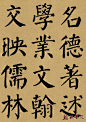 名德著述
學業文翰
交映儒林